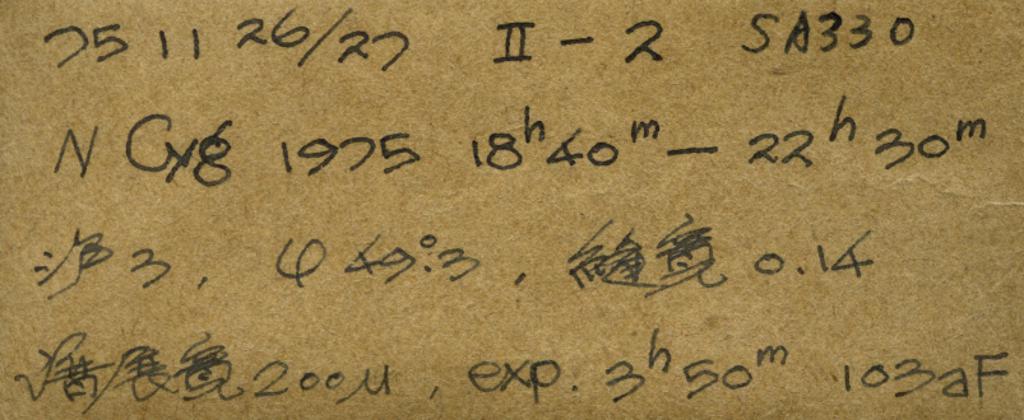 75 11 26/27 II-2 SA330
N Cyg 1975 18ʰ40ᵐ — 22ʰ30ᵐ
沪3, φ 49°.3, 縫寬 0.14
谱展寬 200μ, exp. 3ʰ50ᵐ 103aF